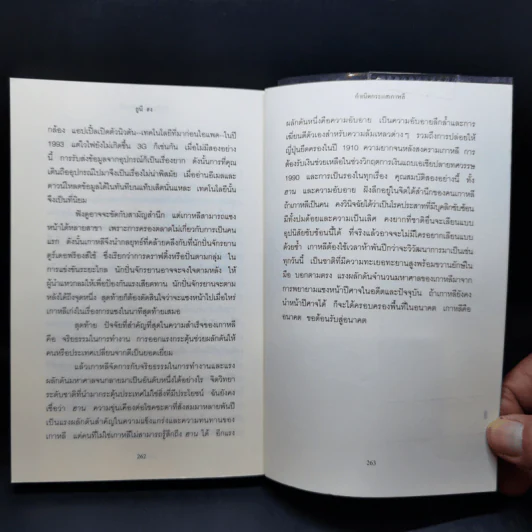 ยูนี ฮง
กล้อง แอปเปิ้ลเปิดตัวนิวตัน--เทคโนโลยีที่มาก่อนไอแพด--ในปี
1993 แต่ไวไฟยังไม่เกิดขึ้น 3G ก็เช่นกัน เมื่อไม่มีสองอย่าง
นี้ การรับส่งข้อมูลจากอุปกรณ์ก็เป็นเรื่องยาก ดังนั้นการที่คุณ
เดินถืออุปกรณ์ไปมาจึงเป็นเรื่องไม่น่าพิสมัย เมื่ออ่านอีเมลและ
ดาวน์โหลดข้อมูลได้ในทันทีบนแท็บเล็ตนั่นแหละ เทคโนโลยีนั้น
จึงเป็นที่นิยม
ฟังดูอาจจะขัดกับสามัญสำนึก แต่เกาหลีสามารถแซง
หน้าได้หลายสาขา เพราะการครองตลาดไม่เกี่ยวกับการเป็นคน
แรก ดังนั้นเกาหลีจึงนำกลยุทธ์ที่คล้ายคลึงกับที่นักปั่นจักรยาน
ตูร์เดอฟรองส์ใช้ ซึ่งเรียกว่าการคราฟติ้งหรือปั่นตามกลุ่ม ใน
การแข่งขันระยะไกล นักปั่นจักรยานอาจจะจงใจตามหลัง ให้
ผู้นำแหวกลมให้เพื่อป้องกันแรงเสียดทาน นักปั่นจักรยานจะตาม
หลังได้ถึงจุดหนึ่ง สุดท้ายก็ต้องตัดสินใจว่าจะแซงหน้าไปเมื่อไหร่
เกาหลีเก่งในเรื่องการแซงในนาทีสุดท้ายเสมอ
สุดท้าย ปัจจัยที่สำคัญที่สุดในความสำเร็จของเกาหลี
คือ จริยธรรมในการทำงาน การออกแรงกระตุ้นช่วยผลักดันให้
คนหรือประเทศเปลี่ยนจากดีเป็นยอดเยี่ยม
แล้วเกาหลีจัดการกับจริยธรรมในการทำงานและแรง
ผลักดันมหาศาลจนกลายมาเป็นอันดับหนึ่งได้อย่างไร จิตวิทยา
ระดับชาติที่นำมากระตุ้นประเทศไม่ใช่สิ่งที่มีประโยชน์ ฉันยังคง
เชื่อว่า ฮาน ความขุ่นเคืองต่อโชคชะตาที่สั่งสมมาหลายพันปี
เป็นแรงผลักดันสำคัญในความแข็งแกร่งและความทนทานของ
เกาหลี แต่คนที่ไม่ใช่เกาหลีไม่สามารถรู้สึกถึง ฮาน ได้ อีกแรง
262
กำเนิดกระแสเกาหลี
ผลักดันหนึ่งคือความอับอาย เป็นความอับอายลึกล้ำและการ
เฆี่ยนตีตัวเองสำหรับความล้มเหลวต่างๆ รวมถึงการปล่อยให้
ญี่ปุ่นยึดครองในปี 1910 ความยากจนหลังสงครามเกาหลี การ
ต้องรับเงินช่วยเหลือในช่วงวิกฤตการเงินแถบเอเชียปลายทศวรรษ
1990 และการเป็นรองในทุกเรื่อง คุณสมบัติสองอย่างนี้ ทั้ง
ฮาน และความอับอาย ฝังลึกอยู่ในจิตใต้สำนึกของคนเกาหลี
ถ้าเกาหลีเป็นคน คงวินิจฉัยได้ว่าเป็นโรคประสาทที่มีบุคลิกซับซ้อน
มีทั้งปมด้อยและความเป็นเลิศ คงยากที่ชาติอื่นจะเลียนแบบ
อุปนิสัยซับซ้อนนี้ได้ ที่จริงแล้วอาจจะไม่มีใครอยากเลียนแบบ
ด้วยซ้ำ เกาหลีต้องใช้เวลาห้าพันปีกว่าจะวิวัฒนาการมาเป็นเช่น
ทุกวันนี้ เป็นชาติที่มีความทะเยอทะยานสูงพร้อมชวนยักษ์ใน
มือ บอกตามตรง แรงผลักดันจำนวนมหาศาลของเกาหลีมาจาก
การพยายามแซงหน้าปีศาจในอดีตและปัจจุบัน ถ้าเกาหลียังคง
นำหน้าปีศาจได้ ก็จะได้ครอบครองพื้นที่ในอนาคต เกาหลีคือ
อนาคต ขอต้อนรับสู่อนาคต
263